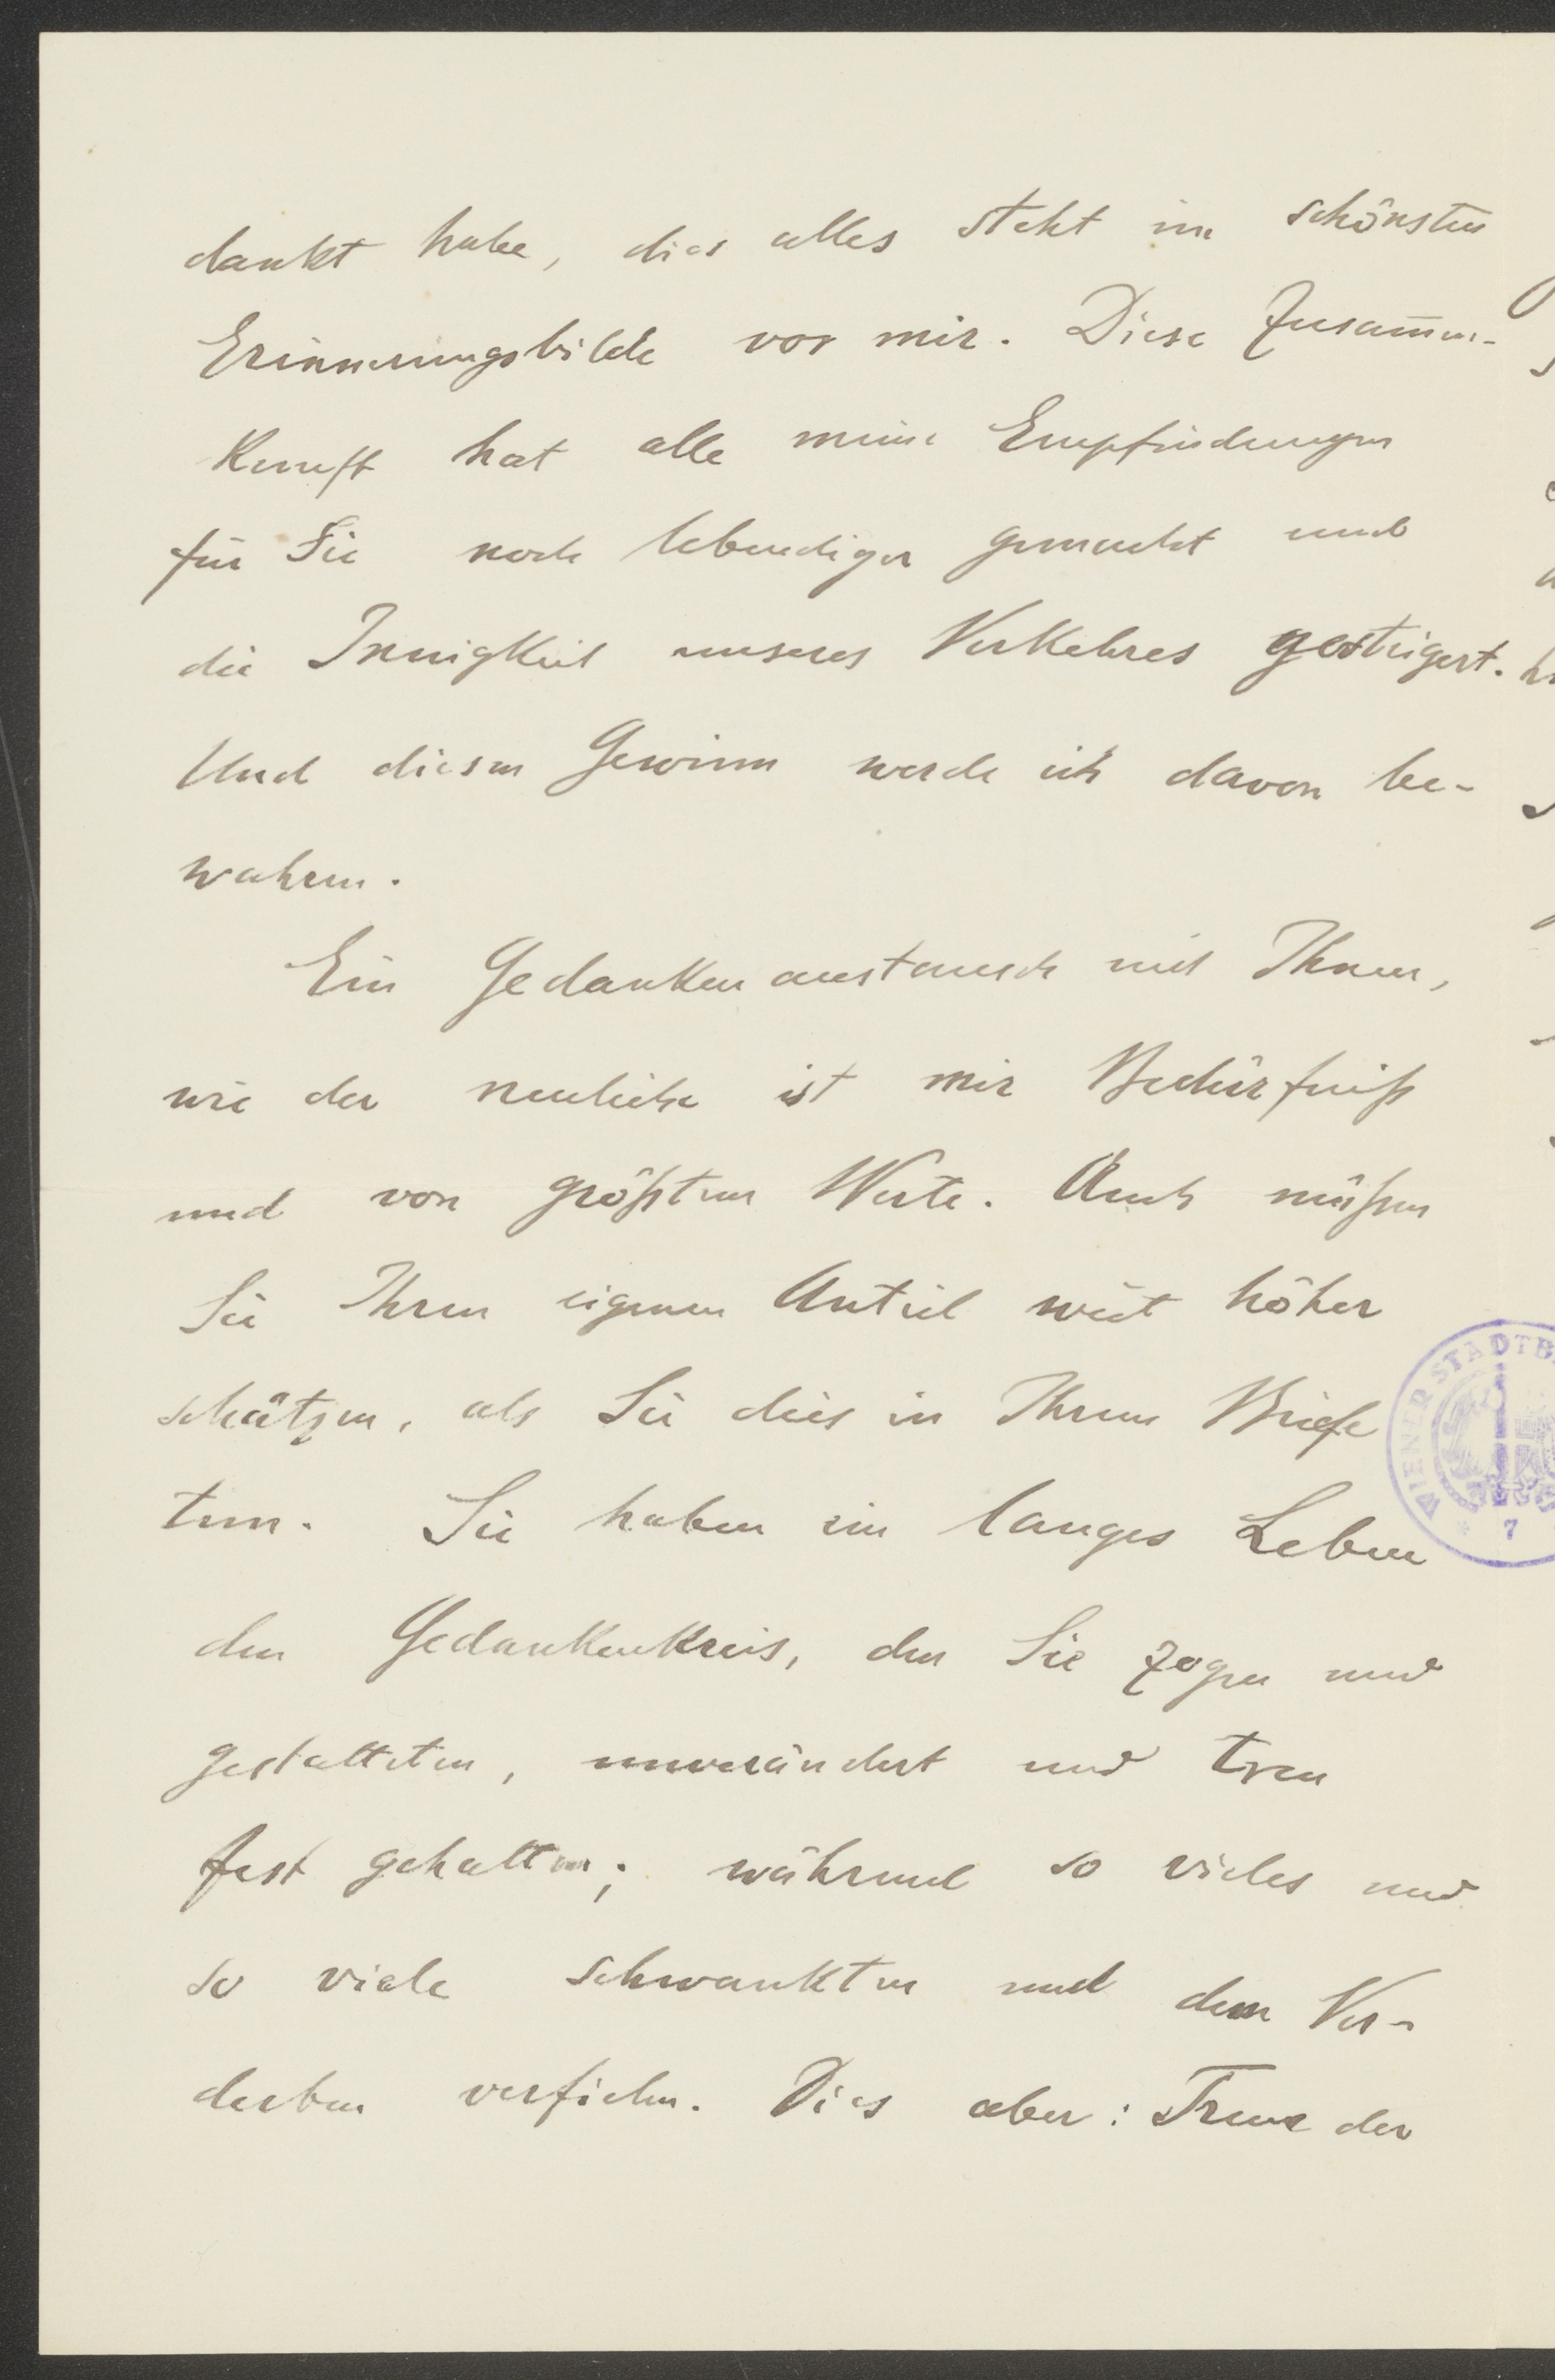 dankt habe, dies alles steht im schönsten
Erinnerungsbilde vor mir. Diese Zusam̅en-
kunft hat alle meine Empfindungen
für Sie noch lebendiger gemacht und
die Innigkeit unseres Verkehres gesteigert.
Und diesen Gewinn werde ich davon be-
wahren.
Ein Gedankenaustausch mit Ihnen,
wie der neuliche ist mir Bedürfniß
und von größtem Werte. Auch müßen
Sie Ihren eigenen Anteil weit höher
schätzen, als Sie dies in Ihrem Briefe
tun. Sie haben ein langes Leben
den Gedankenkreis, den Sie zogen und
gestalteten, unverändert und treu
fest gehalten; während so vieles und
so viele schwankten und dem Ver-
derben verfielen. Dies aber: Treue der
WIENER STADTB
7